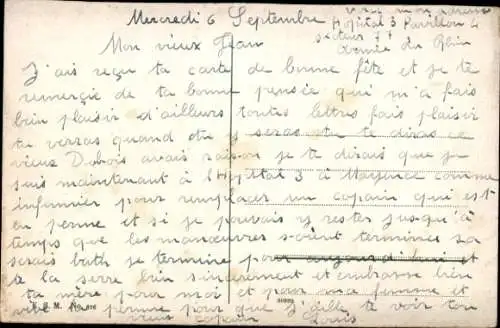 Mercredi 6 Septembre
Voici mon adresse
Hôpital 3 Pavillon 4
Secteur 77
Armée du Rhin
Mon vieux Jean
J'ais reçu ta carte de bonne fête et je te
remerçie de ta bonne pensée qui m'a fais
bien plaisir d'ailleurs toutes lettres fais plaisir
tu verras quand tu y seras tu te diras ce
vieux Dubois avais raison je te dirais que je
suis maintenant à l'Hôpital 3 à Mayence comme
infirmier pour remplacer un copain qui est
en perme et si je pouvais y rester jusqu'à
temps que les manœuvres soient terminés sa
serais bath je termine pour aujourd'hui et
te la serre bien sincèrement et embrasse bien
ta mère pour moi et pour ma femme et
vivement perme pour que j'aille te voir ton
vieux copain Louis